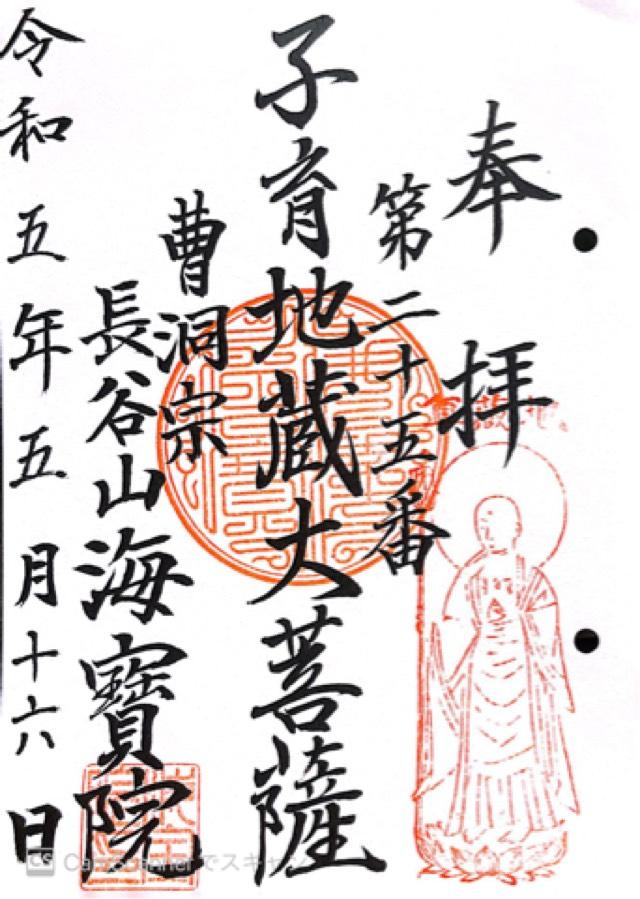 奉拝
第二十五番
子育地蔵大菩薩
曹洞宗
長谷山海寶院
令和五年五月十六日
CS CamScannerでスキャン